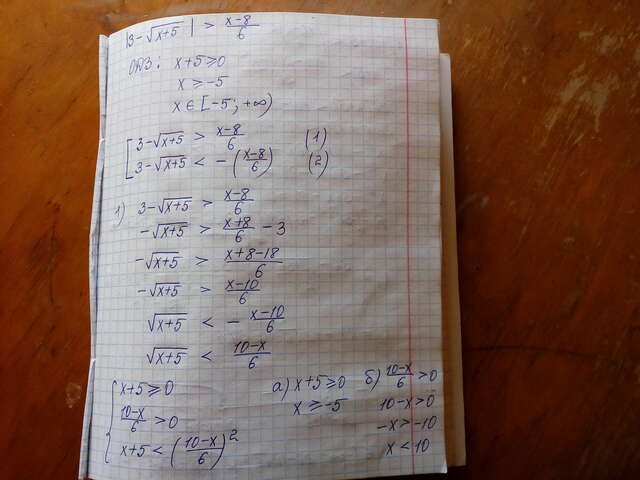 |3-√(x+5)| > (x-8)/6
ОДЗ: x+5≥0
x ≥ -5
x ∈ [-5; +∞)
[ 3-√(x+5) > (x-8)/6 (1)
3-√(x+5) < -((x-8)/6) (2)
1) 3-√(x+5) > (x-8)/6
-√(x+5) > (x+8)/6 - 3
-√(x+5) > (x+8-18)/6
-√(x+5) > (x-10)/6
√(x+5) < - (x-10)/6
√(x+5) < (10-x)/6
{ x+5≥0
(10-x)/6 > 0
x+5 < ((10-x)/6)²
а) x+5≥0
x ≥ -5
б) (10-x)/6 > 0
10-x>0
-x>-10
x < 10